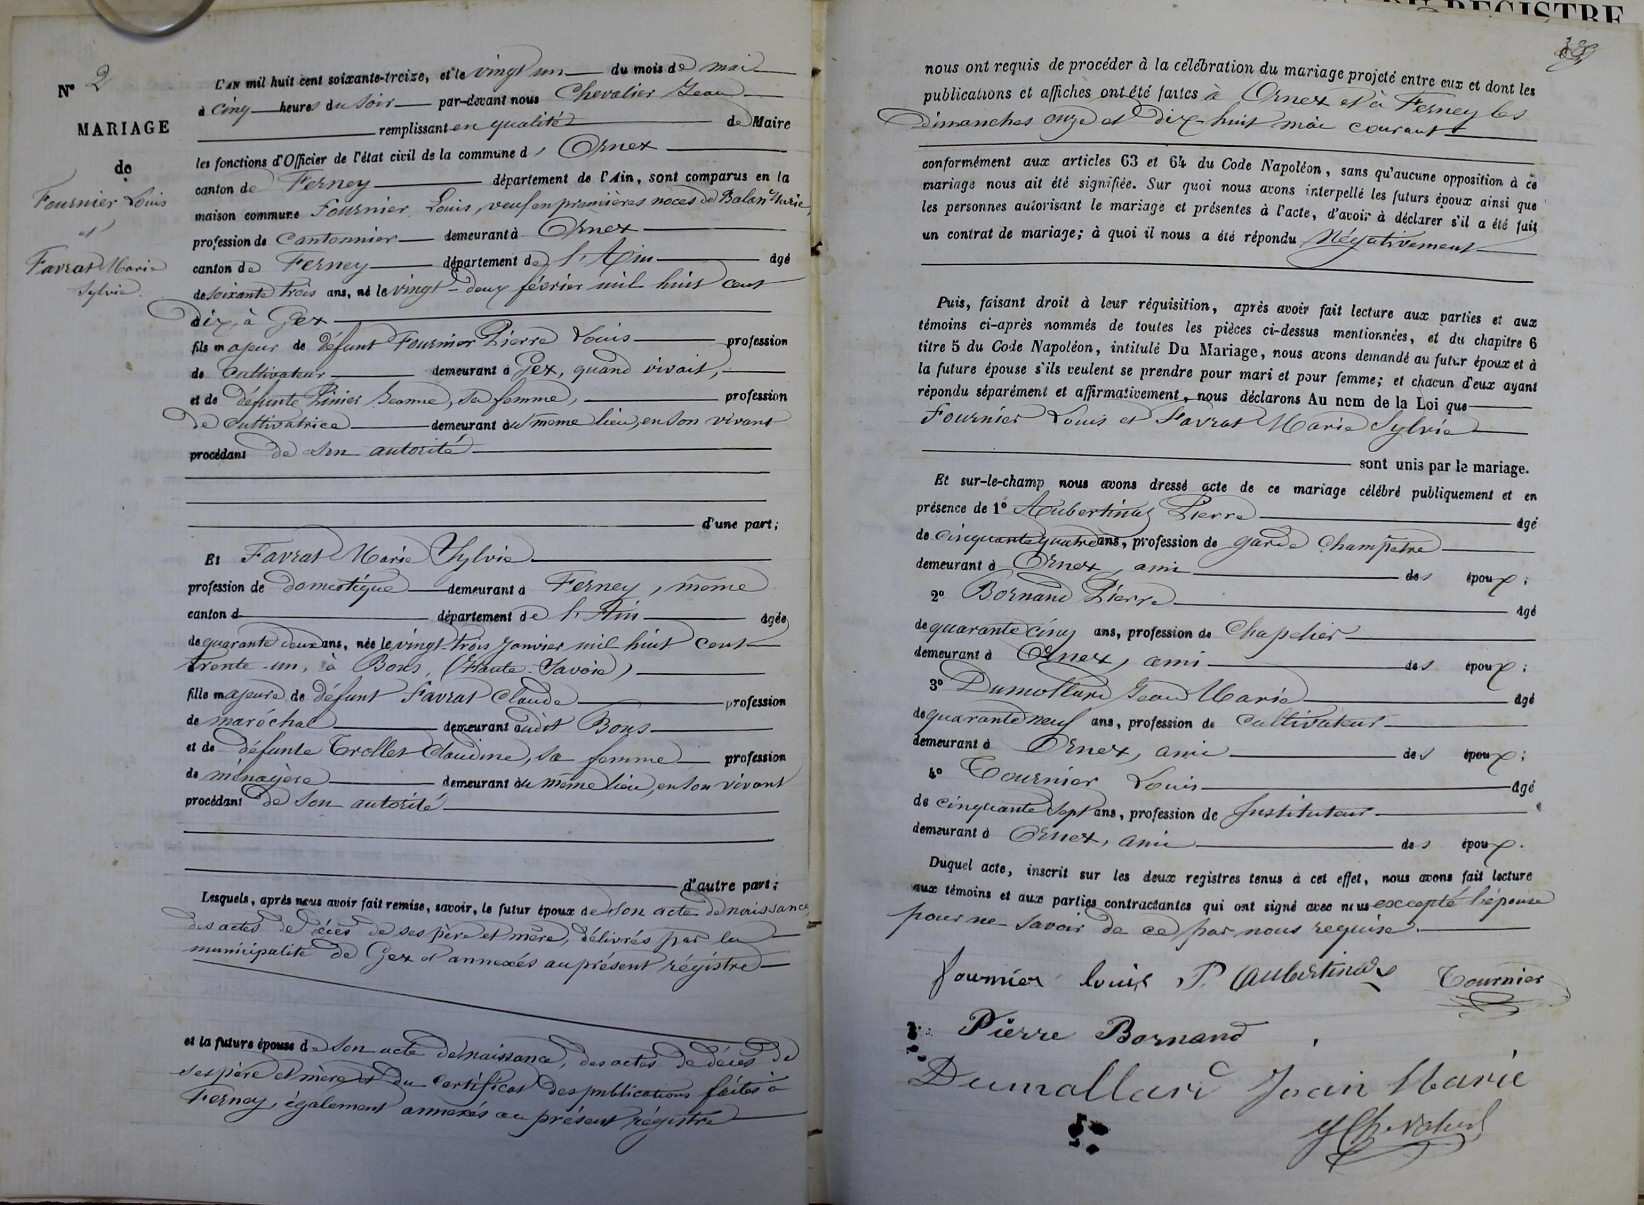 N° 2
MARIAGE
de
Fournier Louis
et
Favrat Marie
Sylvie.
L'AN mil huit cent soixante-treize, et le vingt un du mois de mai
à cinq heures du soir par-devant nous Chevalier Jean
remplissant en qualité de Maire
les fonctions d'Officier de l'état civil de la commune d' Ornex
canton de Ferney département de l'Ain, sont comparus en la
maison commune Fournier Louis, veuf en premières noces de Balan
profession de cantonnier demeurant à Ornex
canton de Ferney département de l'Ain âgé
de soixante trois ans, né le vingt-deux février mil huit cent
dix, à Gex
fils majeur de défunt Fournier Pierre Louis profession
de cultivateur demeurant à Gex, quand vivait,
et de défunte Pinier Jeanne, sa femme, profession
de cultivatrice demeurant au même lieu, en son vivant
procédant de son autorité
d'une part;
Et Favrat Marie Sylvie
profession de domestique demeurant à Ferney, même
canton d département de l'Ain âgée
de quarante deux ans, née le vingt-trois janvier mil huit cent
trente-un, à Bons, (Haute-Savoie)
fille majeure de défunt Favrat Claude profession
de maréchal demeurant audit Bons
et de défunte Trollet Claudine, sa femme profession
de ménagère demeurant au même lieu, en son vivant
procédant de son autorité
d'autre part;
Lesquels, après nous avoir fait remise, savoir, le futur époux de son acte de naissance
des actes de décès de ses père et mère, délivrés par la
municipalité de Gex et annexés au présent régistre
et la future épouse de son acte de naissance, des actes de décès de
ses père et mère et du certificat des publications faites à
Ferney, également annexés au présent régistre
nous ont requis de procéder à la célébration du mariage projeté entre eux et dont les
publications et affiches ont été faites à Ornex et à Ferney les
dimanches onze et dix-huit mai courant
conformément aux articles 63 et 64 du Code Napoléon, sans qu'aucune opposition à ce
mariage nous ait été signifiée. Sur quoi nous avons interpellé les futurs époux ainsi que
les personnes autorisant le mariage et présentes à l'acte, d'avoir à déclarer s'il a été fait
un contrat de mariage; à quoi il nous a été répondu Négativement
Puis, faisant droit à leur réquisition, après avoir fait lecture aux parties et aux
témoins ci-après nommés de toutes les pièces ci-dessus mentionnées, et du chapitre 6
titre 5 du Code Napoléon, intitulé Du Mariage, nous avons demandé au futur époux et à
la future épouse s'ils veulent se prendre pour mari et pour femme; et chacun d'eux ayant
répondu séparément et affirmativement, nous déclarons Au nom de la Loi que
Fournier Louis et Favrat Marie Sylvie
sont unis par le mariage.
Et sur-le-champ nous avons dressé acte de ce mariage célébré publiquement et en
présence de 1° Aubertinaz Pierre âgé
de cinquante quatre ans, profession de garde champêtre
demeurant à Ornex, ami des époux;
2° Bornand Pierre âgé
de quarante cinq ans, profession de Chapelier
demeurant à Ornex, ami des époux;
3° Dumollard Jean Marie âgé
de quarante neuf ans, profession de cultivateur
demeurant à Ornex, ami des époux;
4° Tournier Louis âgé
de cinquante sept ans, profession de Instituteur
demeurant à Ornex, ami des époux.
Duquel acte, inscrit sur les deux registres tenus à cet effet, nous avons fait lecture
aux témoins et aux parties contractantes qui ont signé avec nous excepté l'épouse
pour ne savoir de ce par nous requise.
fournier louis P. Aubertinaz Tournier
Pierre Bornand
Dumollard Jean Marie
J Chevalier